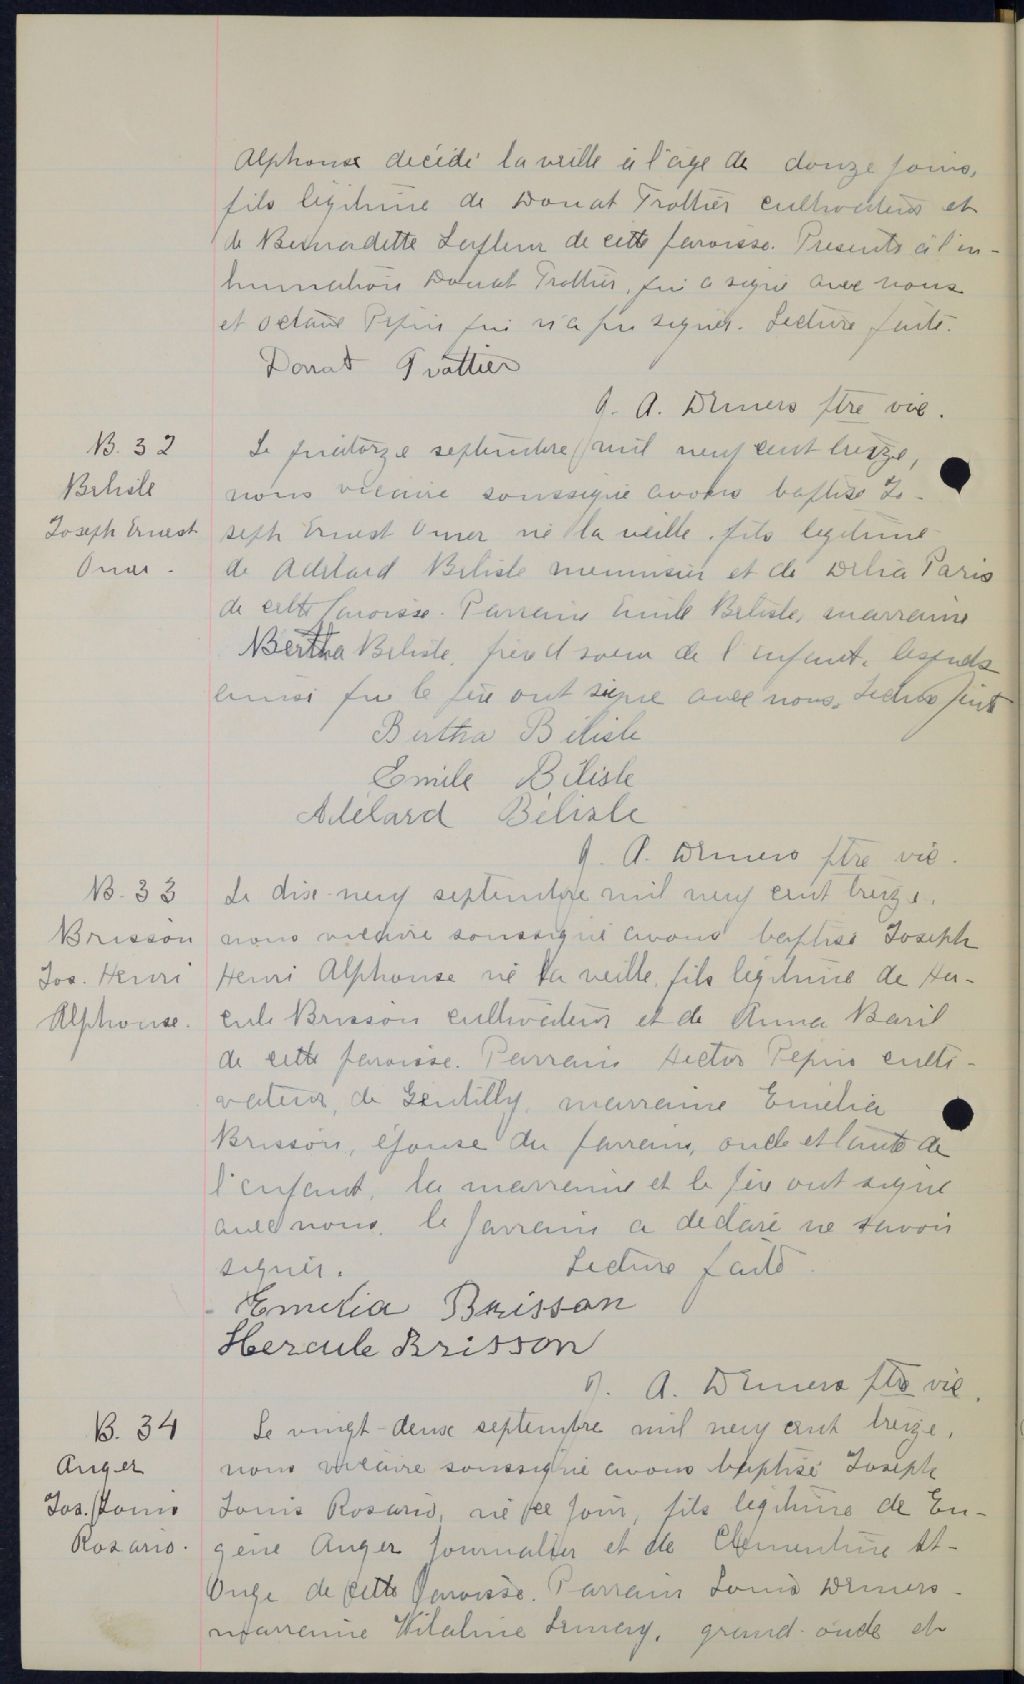 Alphonse décédé la veille à l'âge de douze jours,
fils légitime de Donat Trottier cultivateur et
de Bernadette Lafleur de cette paroisse. Présents à l'in-
humation Donat Trottier, qui a signé avec nous
et Octave Pepin qui n'a pu signer. Lecture faite.
Donat Trottier
J. A. Demers ptre vic.
B. 32
Belisle
Joseph Ernest
Omer.
Le quatorze septembre mil neuf cent treize,
nous vicaire soussigné avons baptisé Jo-
seph Ernest Omer né la veille, fils légitime
de Adélard Belisle menuisier et de Délia Paris
de cette paroisse. Parrain Emile Belisle, marraine
Bertha Belisle, frère et soeur de l'enfant, lesquels
ainsi que le père ont signé avec nous. Lecture faite
Bertha Bélisle
Emile Bélisle
Adélard Bélisle
J. A. Demers ptre vic.
B. 33
Brisson
Jos. Henri
Alphonse.
Le dix-neuf septembre mil neuf cent treize,
nous vicaire soussigné avons baptisé Joseph
Henri Alphonse né la veille, fils légitime de Her-
cule Brisson cultivateur et de Anna Baril
de cette paroisse. Parrain Hector Pepin culti-
vateur, de Gentilly, marraine Emélia
Brisson, épouse du parrain, oncle et tante de
l'enfant, la marraine et le père ont signé
avec nous, le parrain a déclaré ne savoir
signer. Lecture faite.
Emelia Brisson
Hercule Brisson
J. A. Demers ptre vic.
B. 34
Anger
Jos. Louis
Rosario.
Le vingt-deux septembre mil neuf cent treize,
nous vicaire soussigné avons baptisé Joseph
Louis Rosario, né ce jour, fils légitime de Eu-
gène Anger journalier et de Clémentine St-
Onge de cette paroisse. Parrain Louis Demers-
marraine Vitaline Lemay, grand-oncle et